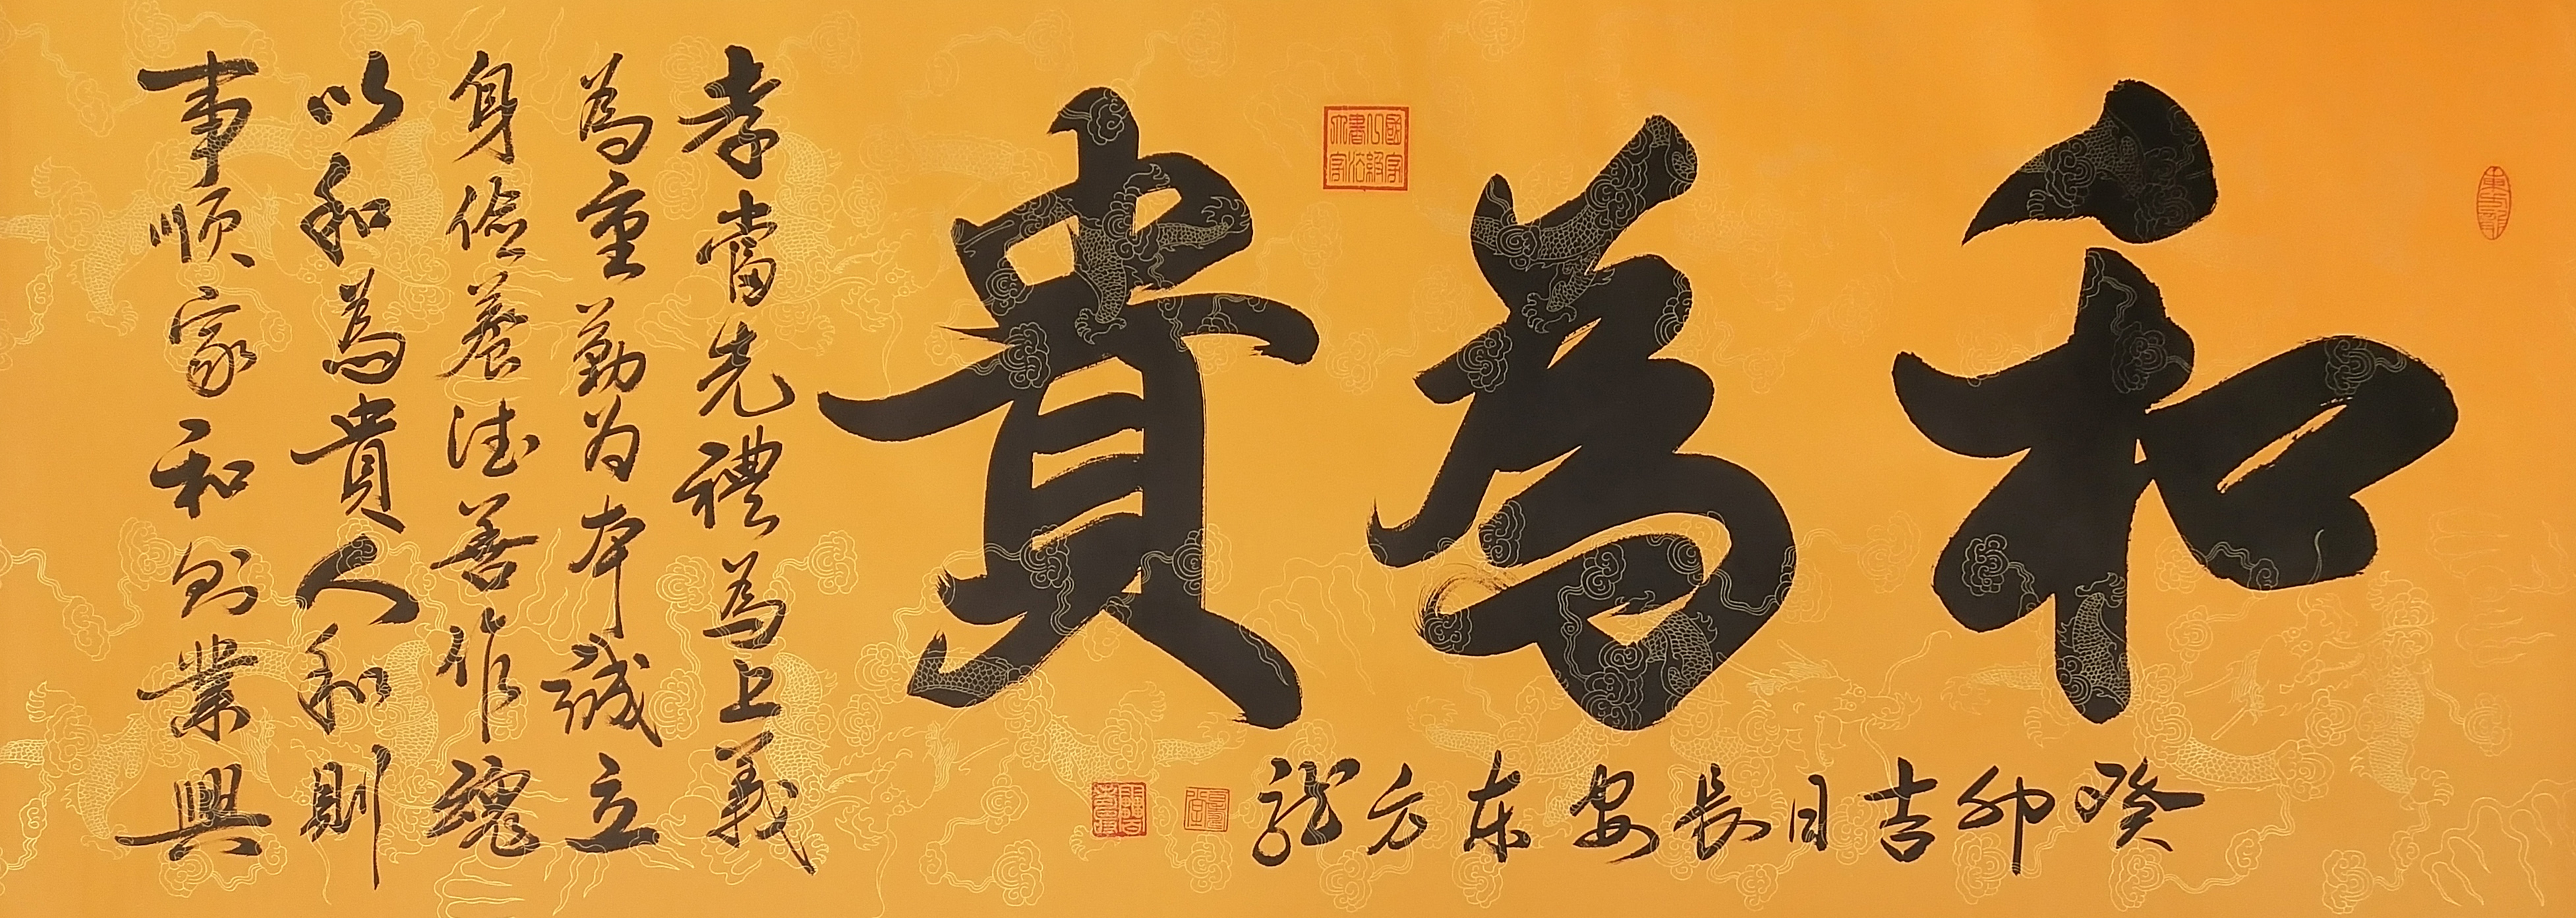 和為貴
癸卯吉日長安东方龍
孝當先禮為上義
為重勤为本誠立
身儉養德善作魂
以和為貴人和則
事顺家和则業興